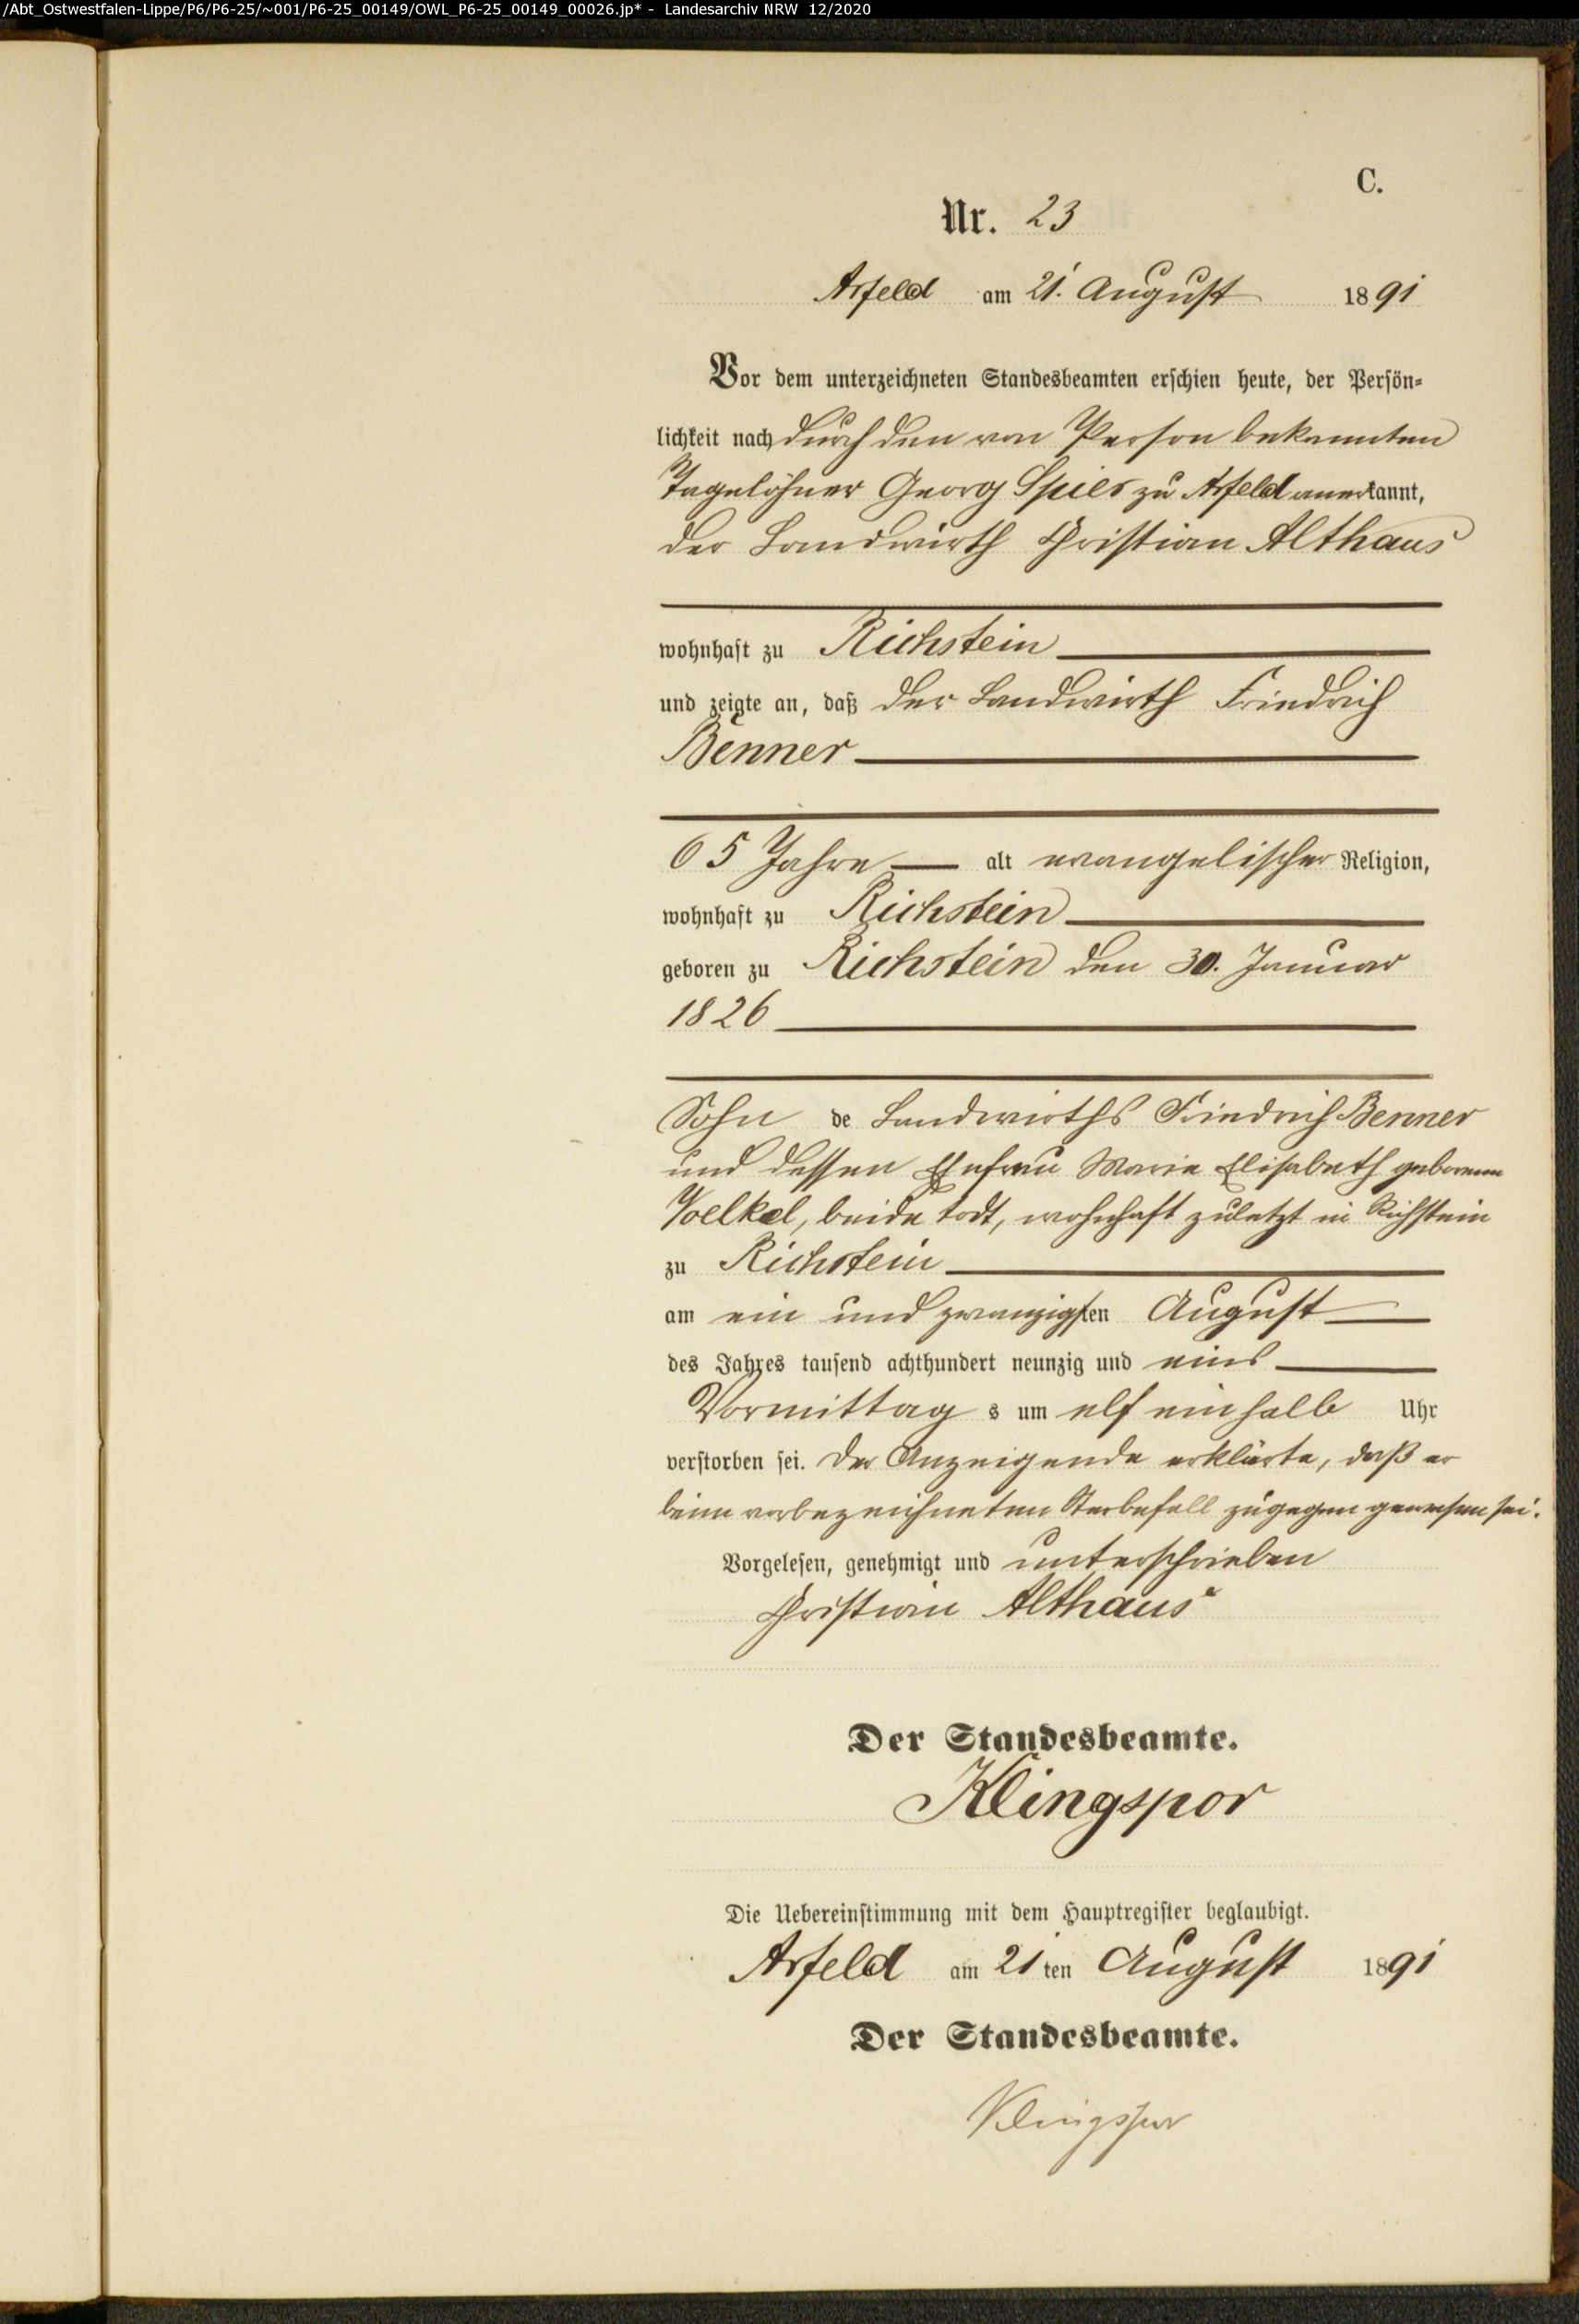 /Abt_Ostwestfalen-Lippe/P6/P6-25/~001/P6-25_00149/OWL_P6-25_00149_00026.jp* - Landesarchiv NRW 12/2020
C.
Nr. 23
Arfeld am 21. August 1891
Vor dem unterzeichneten Standesbeamten erschien heute, der Persön-
lichkeit nach durch den von Person bekannten
Tagelöhner Georg Spies zu Arfeld anerkannt,
der Landwirth Christian Althaus
wohnhaft zu Richstein
und zeigte an, daß der Landwirth Friedrich
Benner
65 Jahre alt evangelischer Religion,
wohnhaft zu Richstein
geboren zu Richstein den 30. Januar
1826
Sohn de Landwirths Friedrich Benner
und dessen Ehefrau Marie Elisabeth geborenen
Voelkel, beide todt, wohnhaft zuletzt in Richstein
zu Richstein
am ein und zwanzigsten August
des Jahres tausend achthundert neunzig und eins
Vormittag s um elf einhalb Uhr
verstorben sei. Der Anzeigende erklärte, daß er
beim vorbezeichneten Sterbefall zugegen gewesen sei.
Vorgelesen, genehmigt und unterschrieben
Christian Althaus
Der Standesbeamte.
Klingspor
Die Uebereinstimmung mit dem Hauptregister beglaubigt.
Arfeld am 21 ten August 1891
Der Standesbeamte.
Klingspor